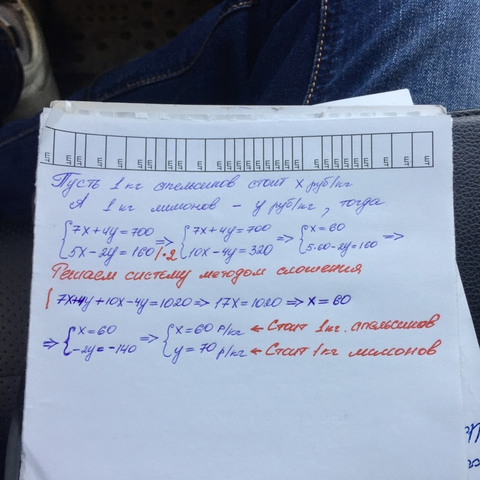 Пусть 1 кг апельсинов стоит x руб/кг
А 1 кг лимонов - y руб/кг, тогда
{7x+4y=700 => {7x+4y=700 => {x=60
{5x-2y=160 |·2 {10x-4y=320 {5·60-2y=160 =>
Решаем систему методом сложения
{ 7x+4y+10x-4y=1020 => 17x=1020 => x=60
=> {x=60 => {x=60 р/кг ← Стоит 1 кг. апельсинов
{-2y=-140 {y=70 р/кг ← Стоит 1 кг лимонов